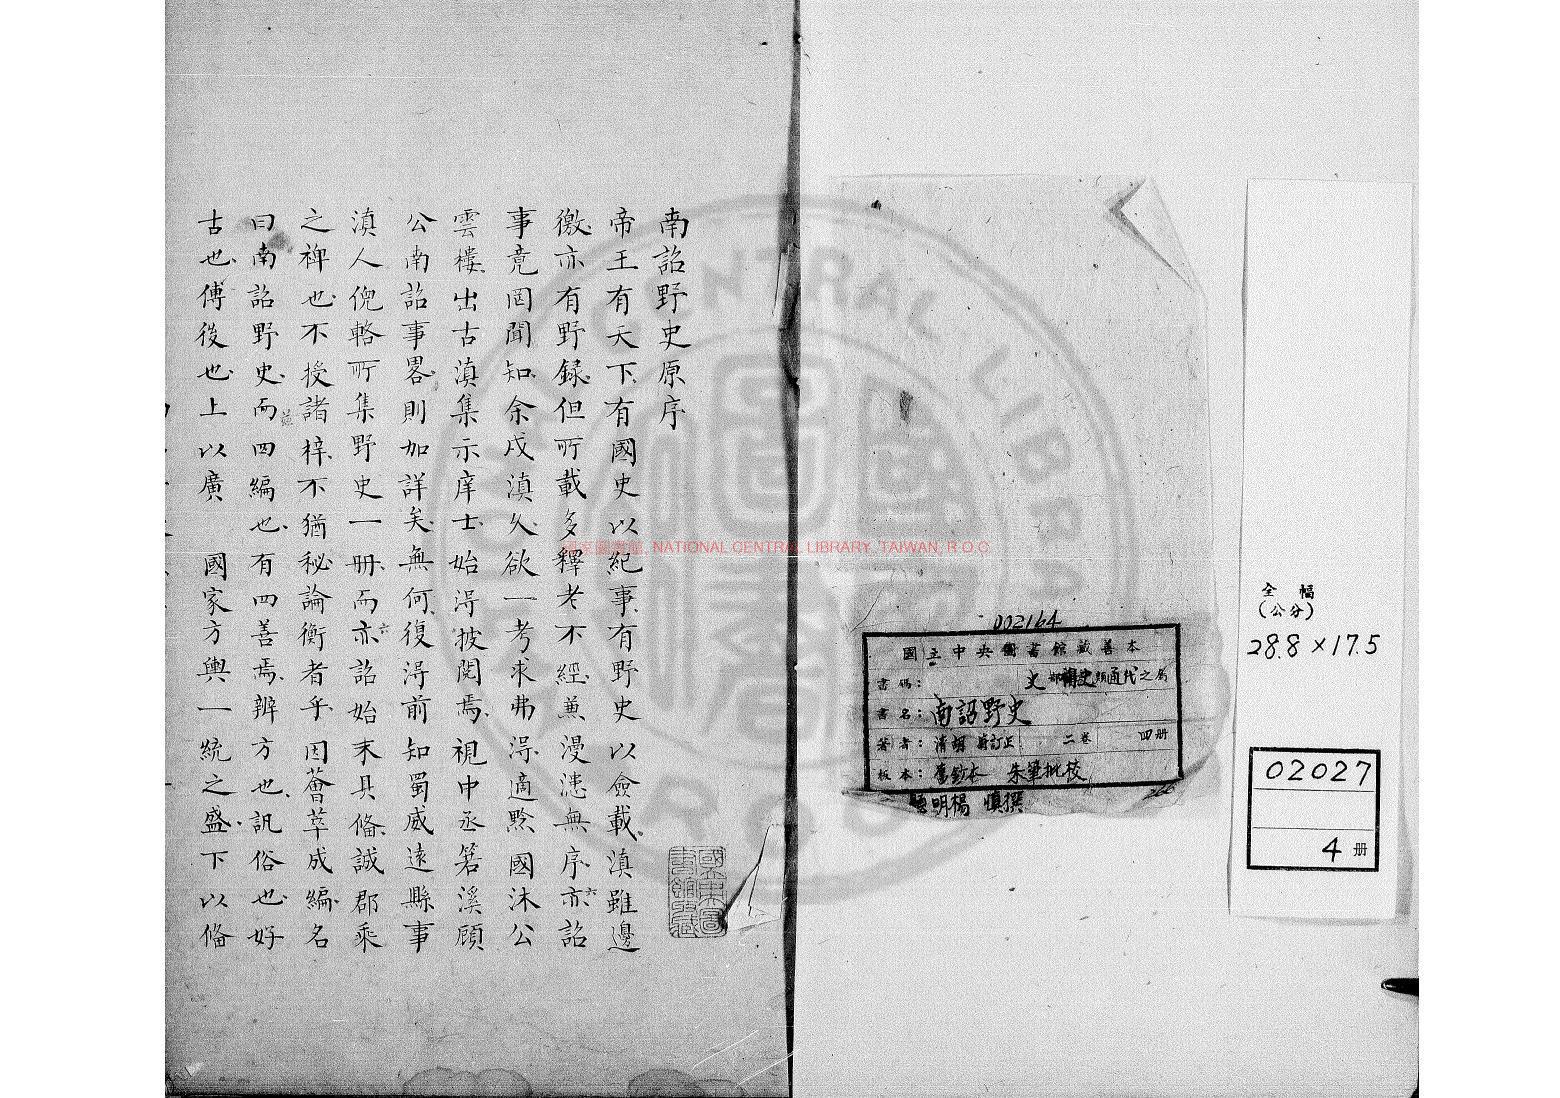 全幅
(公分)
28.8×17.5
02027
4 册
002164
國立中央圖書館藏善本
書碼: 史部 類通代之屬
書名: 南詔野史
著者: 清胡 訂正 二卷 四册
板本: 舊鈔本 朱筆批校
明楊慎撰
南詔野史原序
帝王有天下有國史以紀事有野史以僉載滇雖邊
徼亦有野録但所載多釋老不經兼漫漶無序亦詔
六
事竟罔聞知余戍滇久欲一考求弗淂適黔國沐公
雲樓出古滇集示庠士始淂披閱焉視中丞箬溪顧
公南詔事畧則加詳矣無何復淂前知蜀威遠縣事
滇人倪輅所集野史一冊而亦詔始末具僃誠郡乘
六
之禆也不授諸梓不猶秘論衡者乎因薈萃成編名
曰南詔野史而四編也有四善焉辨方也訊俗也好
古也傳後也上以廣 國家方輿一統之盛下以僃
國家圖書館藏
國家圖書館, NATIONAL CENTRAL LIBRARY, TAIWAN, R.O.C